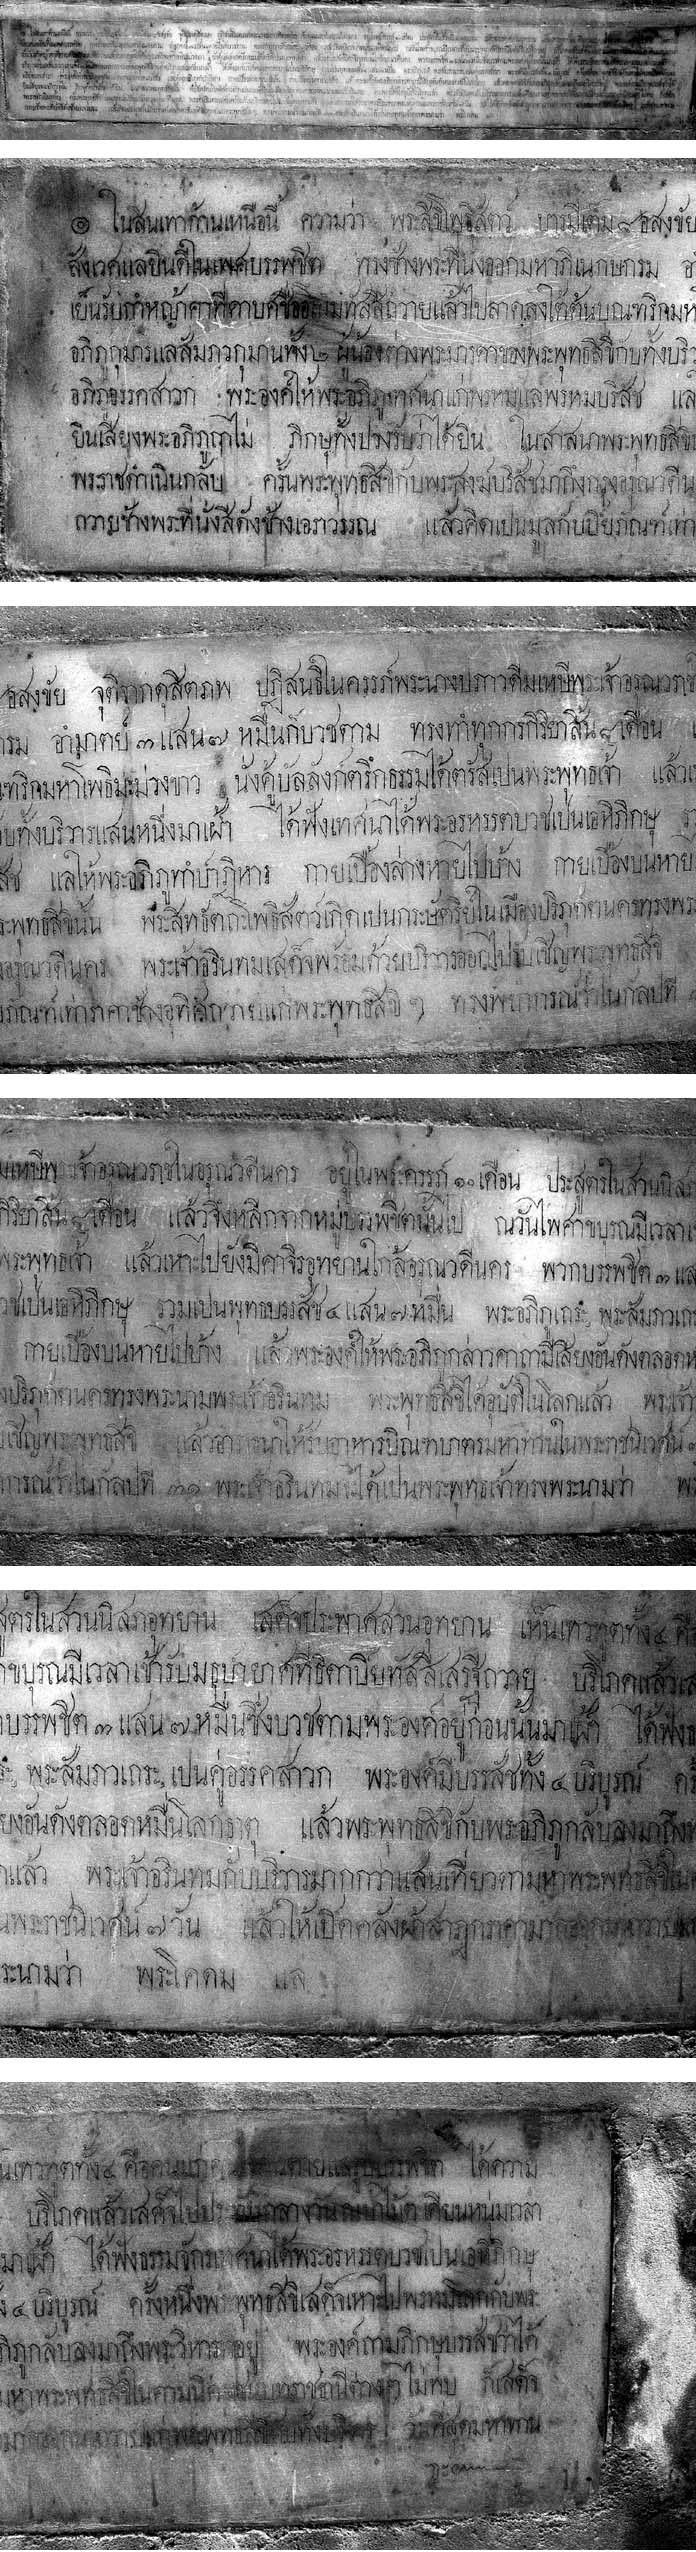 ๏ ในสินเทาด้านเหนือนี้ ความว่า พระสิขีโพธิสัตว์ บารมีเต็ม ๘ อสงขัย จุติจากดุสิตภพ ปฏิสนธิในครรภ์พระนางปภาวดีมเหษีพระเจ้าอรุณวราชในอรุณวดีนคร อยู่ในพระครรภ์ ๑๐ เดือน ประสูตรในสวนนิสภอุทยาน เสด็จประพาศสวนอุทยาน เห็นเทวทูตทั้ง ๔ คือคนแก่ ตายแลรูปบรรพชิต ได้ความ
สังเวคแลยินดีในเพศบรรพชิต ทรงช้างพระที่นั่งออกมหาภิเนกษกรม อำมาตย์ ๓ แสน ๗ หมื่นก็บวชตาม ทรงทำทุกกรกิริยาสิ้น ๘ เดือน แล้วจึงหลีกจากหมู่บรรพชิตนั้นไป ณวันไพศาขบุรณมีเวลาเช้ารับมธุปายาศที่ธิดาปิยทัสสีเสรฐีถวาย บริโภคแล้วเสด็จไป กลางวัน เคียนหนุ่มเวลา
เย็นรับถาหญ้าคาที่ดาบศชื่ออโนมทัสสีถวายแล้วไปลาดลงใต้ต้นบุณฑริกมหาโพธิมะม่วงขาว นั่งคู้บัลลังก์ตรึกธรรมได้ตรัสเป็นพระพุทธเจ้า แล้วเหาะไปยังมิคาจิรอุทยานใกล้อรุณวดีนคร พวกบรรพชิต ๓ แสน ๗ หมื่นซึ่งบวชตามพระองค์อยู่ก่อนนั้นมาเฝ้า ได้ฟังธรรมจักรเทศนาได้พระอรหรรตบวชเป็นเอหิภิกษุ
อภิภูกุมารแลสัมภวกุมานทั้ง ๒ ผู้น้องต่างพระมารดาของพระพุทธสิขีกับทั้งบริวารแสนหนึ่งมาเฝ้า ได้ฟังเทศนาได้พระอรหรรตบวชเป็นเอหิภิกษุ รวมเป็นพุทธบรรสัช ๔ แสน ๗ หมื่น พระอภิภูเถระ พระสัมภวเถระ เป็นคู่อรรคสาวก พระองค์มีบรรสัชทั้ง ๔ บริบูรณ์ ครั้งหนึ่งพระพุทธสิขีเสด็จเหาะไปพรหมโลกกับพระ
อภิภูอรรคสาวก พระองค์ให้พระอภิภูเทศนาแก่พรหมแลพรหมบริสัช แลให้พระอภิภูทำปาฏิหาร กายเบื้องล่างหายไปบ้าง กายเบื้องบนหายไปบ้าง แล้วพระองค์ให้พระอภิภูกล่าวคาถามีเสียงอันดังตลอดหมื่นโลกธาตุ แล้วพระพุทธสิขีกับพระอภิภูกลับลงมาถึงพระวิหารอยู่ พระองค์ถามภิกษุบรรสัชว่าได้
ยินเสียงพระอภิภูฤๅไม่ ภิกษุทั้งปวงรับว่าได้ยิน ในสาสนาพระพุทธสิขีนั้น พระสิทธัตถโพธิสัตว์เกิดเป็นกระษัตริย์ในเมืองปริภุตตนครทรงพระนามพระเจ้าอรินทม พระพุทธสิขีได้อุบัติในโลกแล้ว พระเจ้าอรินทมกับบริวารมากกว่าแสนเที่ยวตามหาพระพุทธสิขีในคามนิคม ไม่พบ ก็เสด็จ
พระราชดำเนินกลับ ครั้นพระพุทธสิขีกับพระสงฆบริสัชมาถึงกรุงอรุณวดีนคร พระเจ้าอรินทมเสด็จพร้อมด้วยบริวารออกไปรับเชิญพระพุทธสิขี แล้วอาราธนาให้รับอาหารบิณฑบาตรมหาทานในพระราชนิเวศน์ ๗ วัน แล้วให้เปิดคลังผ้าสาฎก แก่พระพุทธสิขีกับทั้ง วันที่สุดมหาทาน
ถวายช้างพระที่นั่งสีดังช้างเอราวรรณ แล้วคิดเป็นมูลกัปปิยภัณฑ์เท่าราคาช้างอุทิศถวายแก่พระพุทธสิขี ๆ ทรงพยากรณ์ว่าในกัลปที่ ๓๑ พระเจ้าอรินทมจะได้เป็นพระพุทธเจ้าทรงพระนามว่า พระโคดม แล